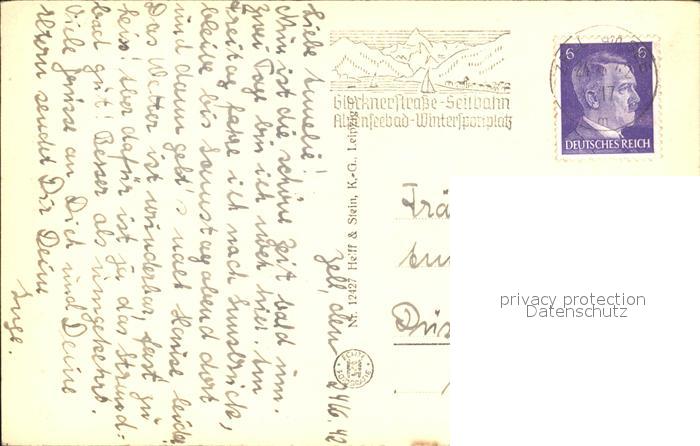 Zell, den 24/6. 42
Liebe Amelie!
Nun ist die schöne Zeit bald um.
Zwei Tage bin ich noch hier. Am
Freitag fahre ich nach Innsbruck,
bleibe bis Samstag abend dort
und dann geht's nach Hause leider.
Das Wetter ist wunderbar, fast zu
heiss! Aber dafür ist ja das Strand-
bad gut! Besser als umgekehrt.
Viele Grüsse an Dich und Deine
Eltern sendet Dir Deine
Inge.
Nr. 12427 Heiff & Stein, K.-G., Leipzig
ECHTE
FOTO
Glocknerstraße-Seilbahn
Alpenseebad-Wintersportplatz
17
m
6 6
DEUTSCHES REICH
Frä
Düs
privacy protection
Datenschutz